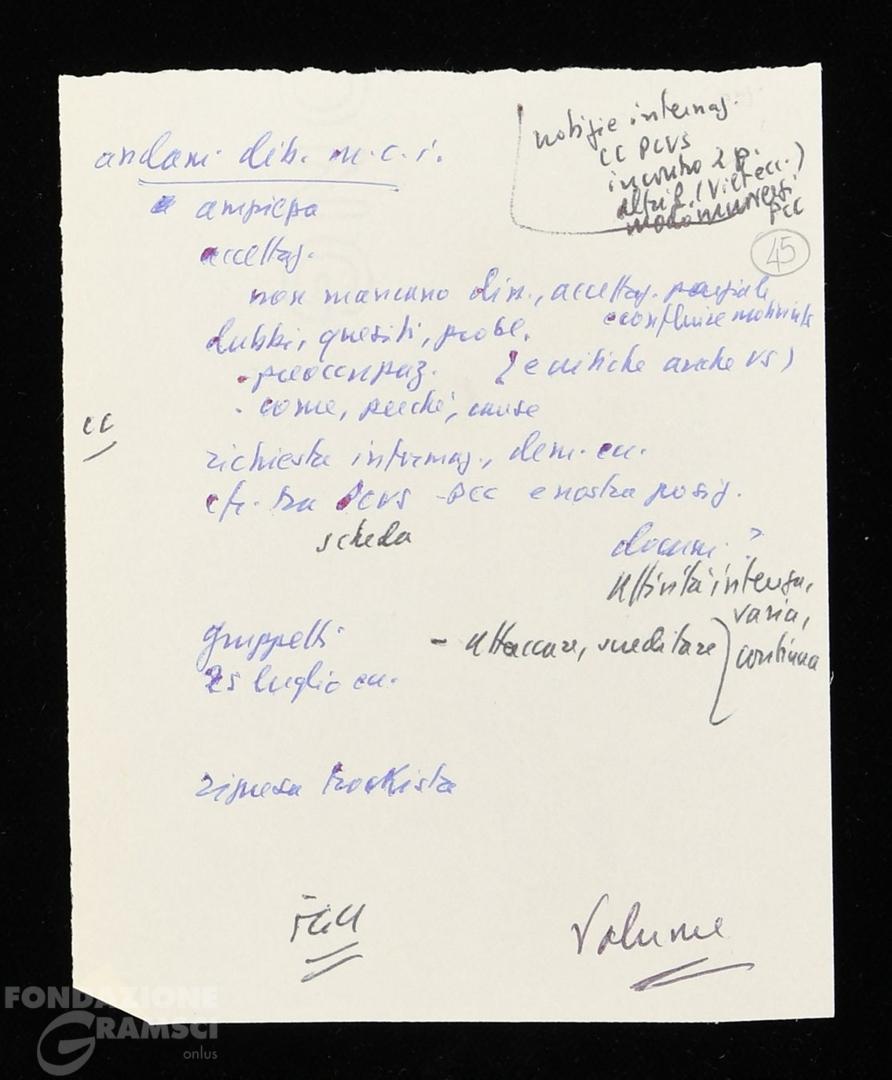 notizie internaz.
CC PCUS
incontro 2 p.
altri p. (Viet ecc.)
PCC
45
andam. dib. m.c.i.
ampiezza
accettaz.
non mancano dim., accettaz. parziale
dubbi, quesiti, probl.
- preoccupaz. (e critiche anche US)
- come, perché, cause
CC
richiesta informaz., dem. ecc.
cfr. tra PCUS - PCC e nostra posiz.
scheda
docum. ?
Attività intensa,
varia,
continua
gruppetti
- attaccare, screditare
25 luglio ecc.
ripresa trockista
Volume
FONDAZIONE
GRAMSCI
onlus